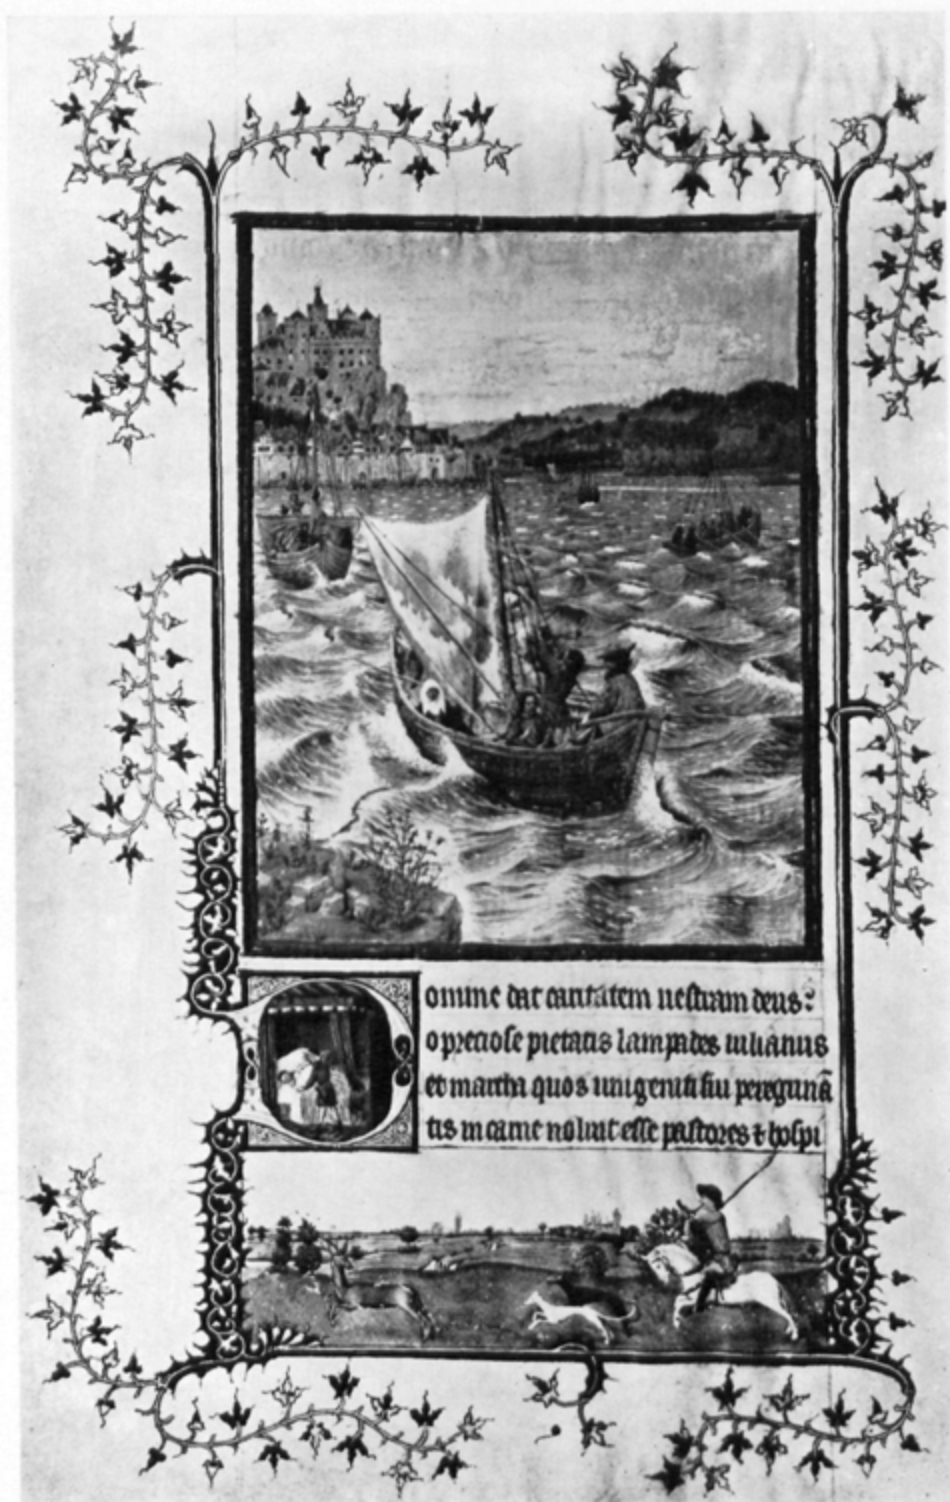 Domine dat caritatem vestram deus:
o preciose pietatis lampades iulianus
et martha quos unigeniti fui peregrinā
tis in carne noluit esse pastores & hospi